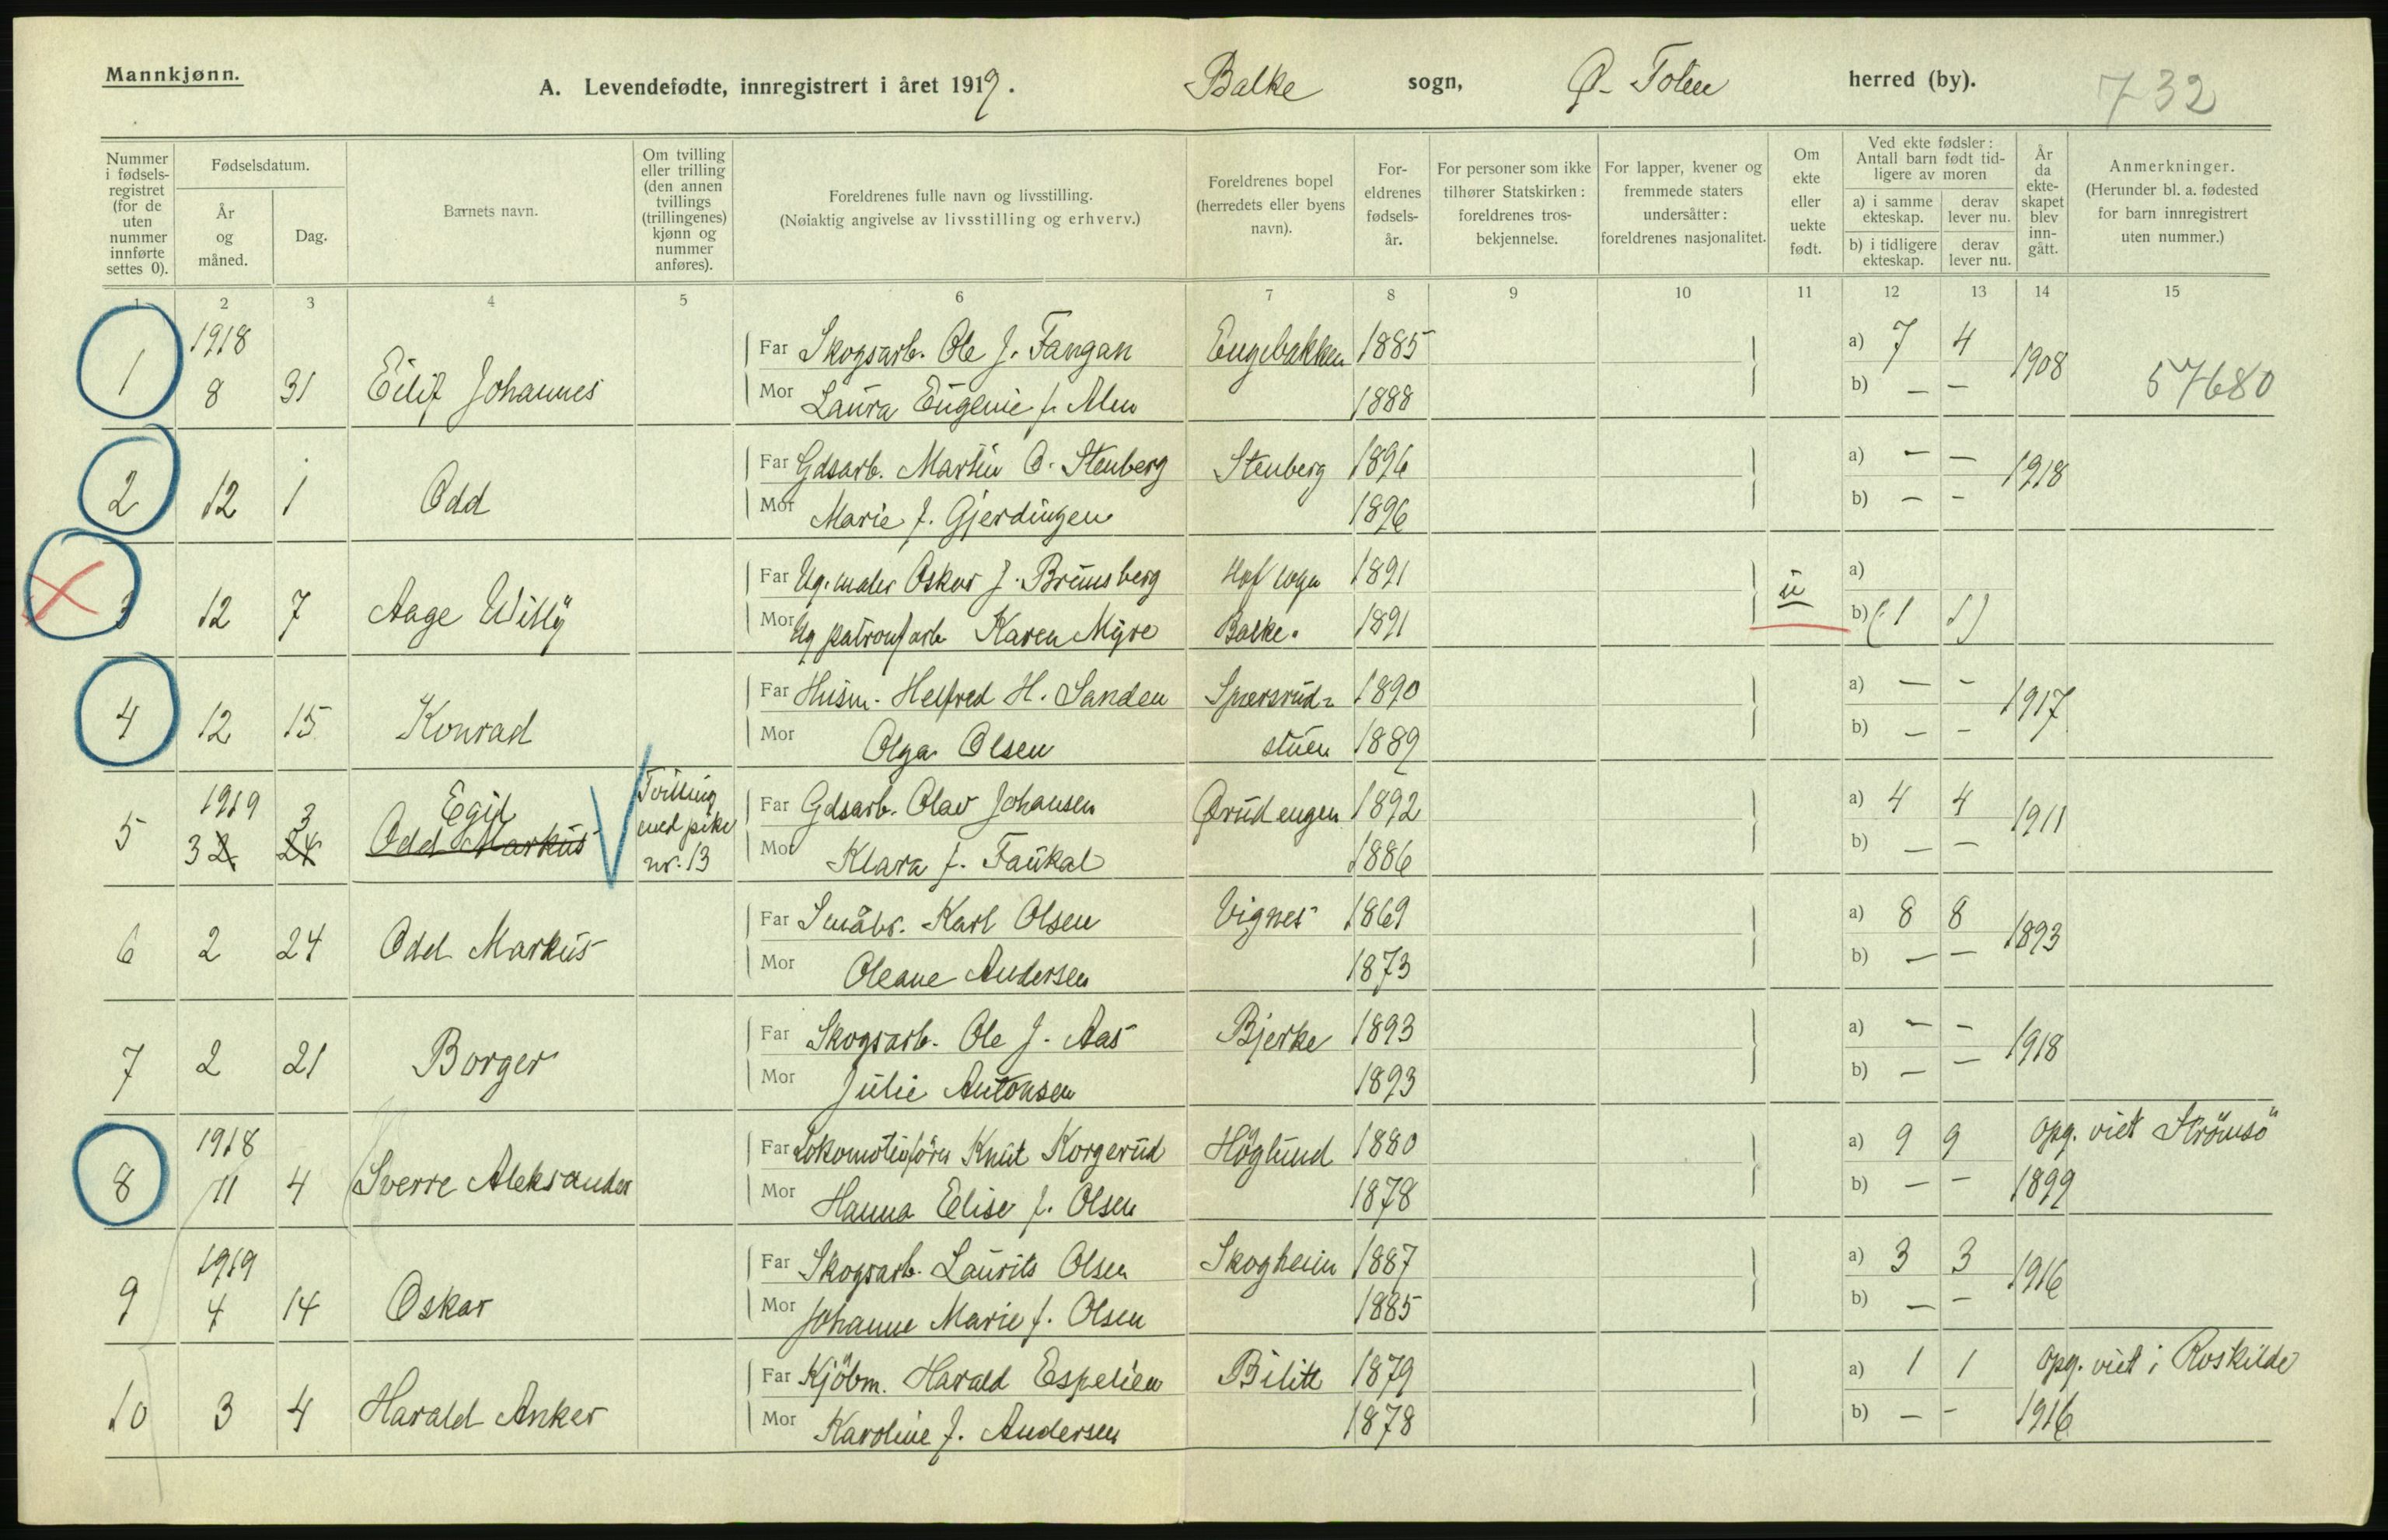 Mannkjønn.
A. Levendefødte, innregistrert i året 1919. Balke sogn, Ø. Toten herred (by). 732
Nummer i fødselsregistret (for de uten nummer innførte settes 0).
Fødselsdatum.
År og måned.
Dag.
Barnets navn.
Om tvilling eller trilling (den annen tvillings (trillingenes) kjønn og nummer anføres).
Foreldrenes fulle navn og livsstilling.
(Nøiaktig angivelse av livsstilling og erhverv.)
Foreldrenes bopel (herredets eller byens navn).
Foreldrenes fødselsår.
For personer som ikke tilhører Statskirken: foreldrenes trosbekjennelse.
For lapper, kvener og fremmede staters undersåtter: foreldrenes nasjonalitet.
Om ekte eller uekte født.
Ved ekte fødsler: Antall barn født tidligere av moren
a) i samme ekteskap.
derav lever nu.
b) i tidligere ekteskap.
derav lever nu.
År da ekteskapet blev inngått.
Anmerkninger.
(Herunder bl. a. fødested for barn innregistrert uten nummer.)
1 2 3 4 5 6 7 8 9 10 11 12 13 14 15
1918
Far Skogsarb. Ole J. Fangan Engebakken 1885 a) 7 4
1 8 31 Eilif Johannes 1908 57680
Mor Laura Eugenie f. Alm 1888 b) — —
Far Gdsarb. Martin O. Stenberg Stenberg 1896 a) — —
2 12 1 Odd 1918
Mor Marie f. Gjerdingen 1896 b) — —
Far Ug. maler Oskar J. Brunsberg Hof sogn 1891 a)
3 12 7 Aage Willy u
Mor Ug patronfarb Karen Myre Balke. 1891 b) (1 1)
Far Husm. Helfred H. Sanden 1890 a) — —
4 12 15 Konrad 1917
Mor Olga Olsen stuen 1889 b) — —
1919 3 Egil Tvilling
Far Gdsarb. Olav Johansen Ørudengen 1892 a) 4 4
5 3 2 24 Odd Markus med pike nr. 13 1911
Mor Klara f. Faukal 1886 b) — —
Far Småbr. Karl Olsen Vignes 1869 a) 8 8
6 2 24 Odd Markus 1893
Mor Oleane Andersen 1873 b) — —
Far Skogsarb. Ole J. Aas Bjerke 1893 a) — —
7 2 21 Borger 1918
Mor Julie Antonsen 1893 b) — —
1918
Far Lokomotivfører Knut Korgerud Höglund 1880 a) 9 9 opg. viet Strömsö
8 11 4 Sverre Aleksander
Mor Hanna Elise f. Olsen 1878 b) — — 1899
1919
Far Skogsarb. Laurits Olsen Skogheim 1887 a) 3 3
9 4 14 Oskar 1916
Mor Johanne Marie f. Olsen 1885 b) — —
Far Kjöbm. Harald Espelien Bilitt 1879 a) 1 1 opg. viet i Roskilde
10 3 4 Harald Anker
Mor Karoline f. Andersen 1878 b) — — 1916